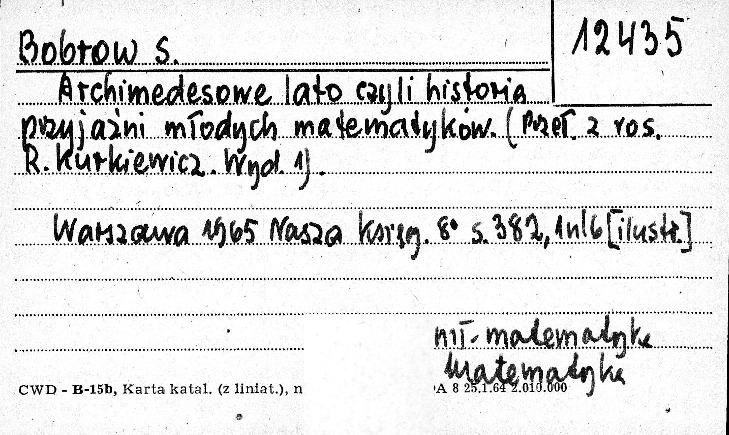 Bobrow S.
12435
Archimedesowe lato czyli historia
przyjaźni młodych matematyków. (Przeł. z ros.
R. Kurkiewicz. Wyd. 1).
Warszawa 1965 Nasza Księg. 8° s. 382, 1 nlb [ilustr.]
mł-matematyka
Matematyka
CWD - B-15b, Karta katal. (z liniat.), n
A 8 25.1.64 2.010.000